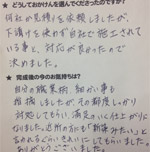 ★どうしておかけんを選んでくださったのですか?
何社か見積りを依頼しましたが、
下請けを使わず自社で施工されて
いる事と、対応が良かったので
決めました。
★完成後の今のお気持ちは?
自分の職業柄 細かい事も
指摘しましたが、その都度しっかり
対応してもらい、満足のいく仕上がりに
なりました。近所の方にも「新築みたい」と
言われるぐらいきれいにしてもらいました。
ありがとうございました。